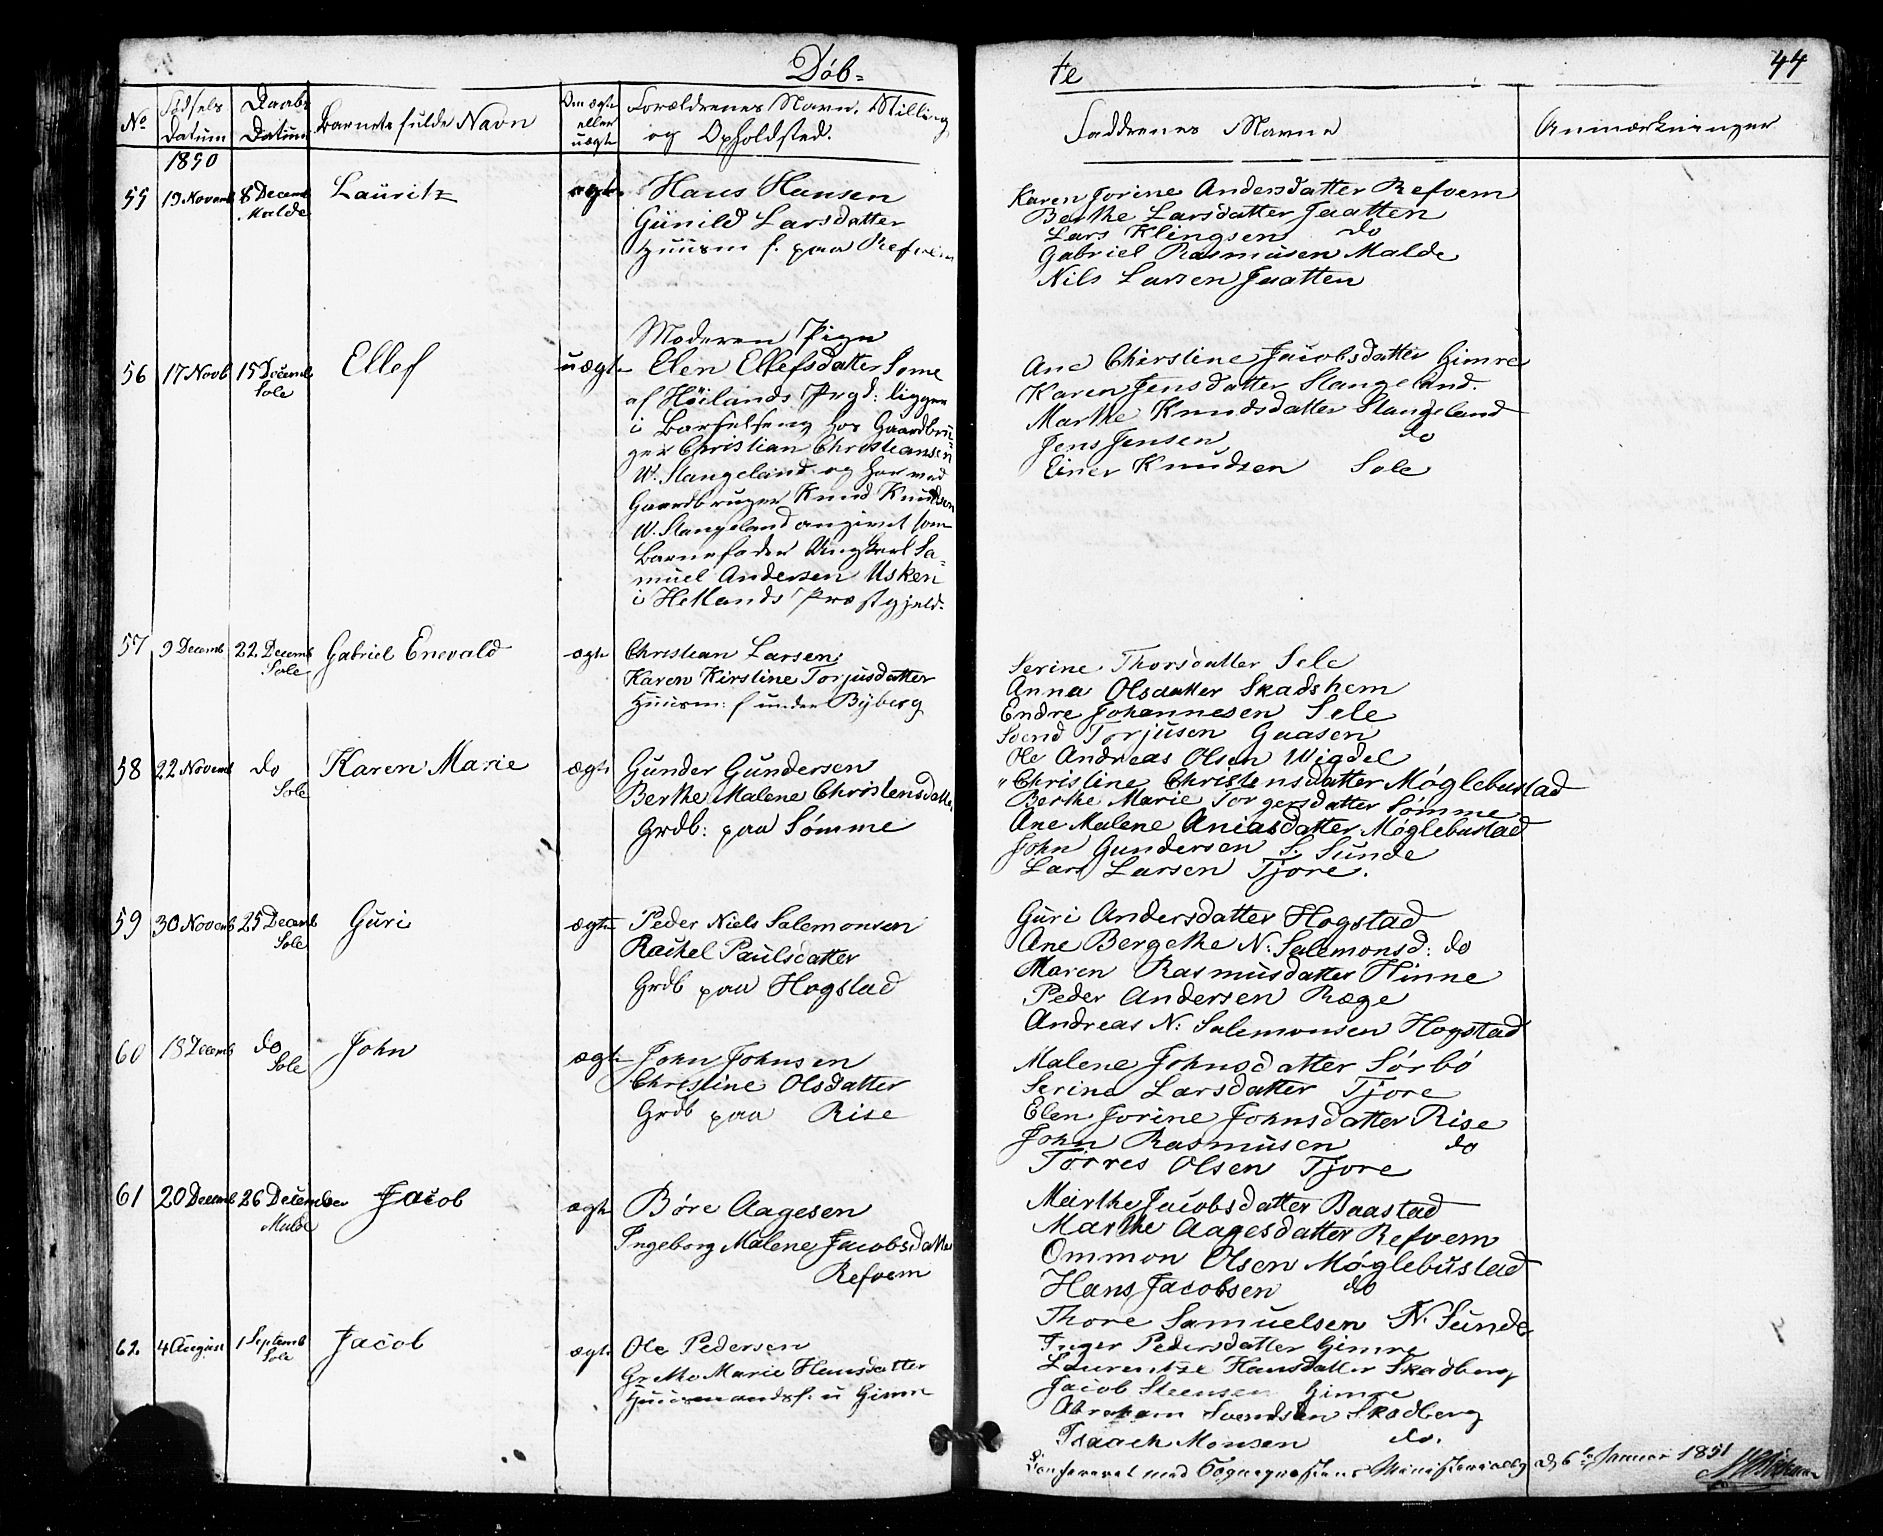 Döb=
te
44
No
Fødsels Datum
Daabs Datum
Barnets fulde Navn
Om ægte eller uægte
Forældrenes Navn, Stilling og Opholdsted.
Faddrenes Navne
Anmærkninger
1850
55 19 Novemb 8 Decemb Malde Lauritz ægte
Hans Hansen
Gunild Larsdatter
Huusm f. paa Refvem
Karen Jorine Andersdatter Refvem
Berthe Larsdatter Jaatten
Lars Klingsen do
Gabriel Rasmusen Malde
Nils Larsen Jaatten
56 17 Novb 15 Decemb Sole Ellef uægte
Moderen Pige
Elen Ellefsdatter Somme
af Höilands Prgd: ligger
i Barselseng hos Gaardbru=
ger Christian Christiansen
W. Stangeland og har ved
Gaardbruger Knud Knudsen
W. Stangeland angivet som
Barnefader Ungkarl Sa=
muel Andersen Usken
i Hetlands Præstgjeld.
Ane Christine Jacobsdatter Gimre
Karen Jensdatter Stangeland.
Marthe Knudsdatter Stangeland
Jens Jensen do
Einer Knudsen Sole
57 9 Decemb 22 Decemb Sole Gabriel Enevald ægte
Christian Larsen
Karen Kirstine Torjusdatter
Huusm: f under Byberg
Serine Thorsdatter Sele
Anna Olsdatter Skadshem
Endre Johannesen Sele
Svend Torjusen Gaasen
Ole Andreas Olsen Wigdel
58 22 Novemb do Sole Karen Marie ægte
Gunder Gundersen
Berthe Malene Christensdatter
Grdb: paa Sömme
Christine Christensdatter Möglebustad
Berthe Marie Torgersdatter Sömme
Ane Malene Aniasdatter Möglebustad
John Gundersen S. Sunde
Lars Larsen Tjore.
59 30 Novemb 25 Decemb Sole Guri ægte
Peder Niels Salemonsen
Rachel Paulsdatter
Grdb paa Hogstad
Guri Andersdatter Hogstad
Ane Bergethe N: Salemonsd: do
Maren Rasmusdatter Hinne
Peder Andersen Ræge
Andreas N: Salemonsen Hogstad
60 18 Decemb do Sole John ægte
John Johnsen
Christine Olsdatter
Grdb paa Rise
Malene Johnsdatter Sörbö
Serine Larsdatter Tjore
Elen Jorine Johnsdatter Rise
John Rasmusen do
Törres Olsen Tjore
61 20 Decemb 26 December Malde Jacob ægte
Böre Aagesen
Ingeborg Malene Jacobsdatter
Refvem
Marthe Jacobsdatter Baastad
Marthe Aagesdatter Refvem
Ommon Olsen Möglebustad
Hans Jacobsen do
Thore Samuelsen N. Sunde
62. 4 August 1 Septemb Sole Jacob ægte
Ole Pedersen
Grethe Marie Hansdatter
Huusmandsf. u Gimre
Inger Pedersdatter Gimre
Laurentze Hansdatter Skadberg
Jacob Steensen Gimre
Abraham Svendsen Skadberg
Isaach Monsen do.
Confereret med Sognepræstens Ministerialbg d 6te Januar 1851